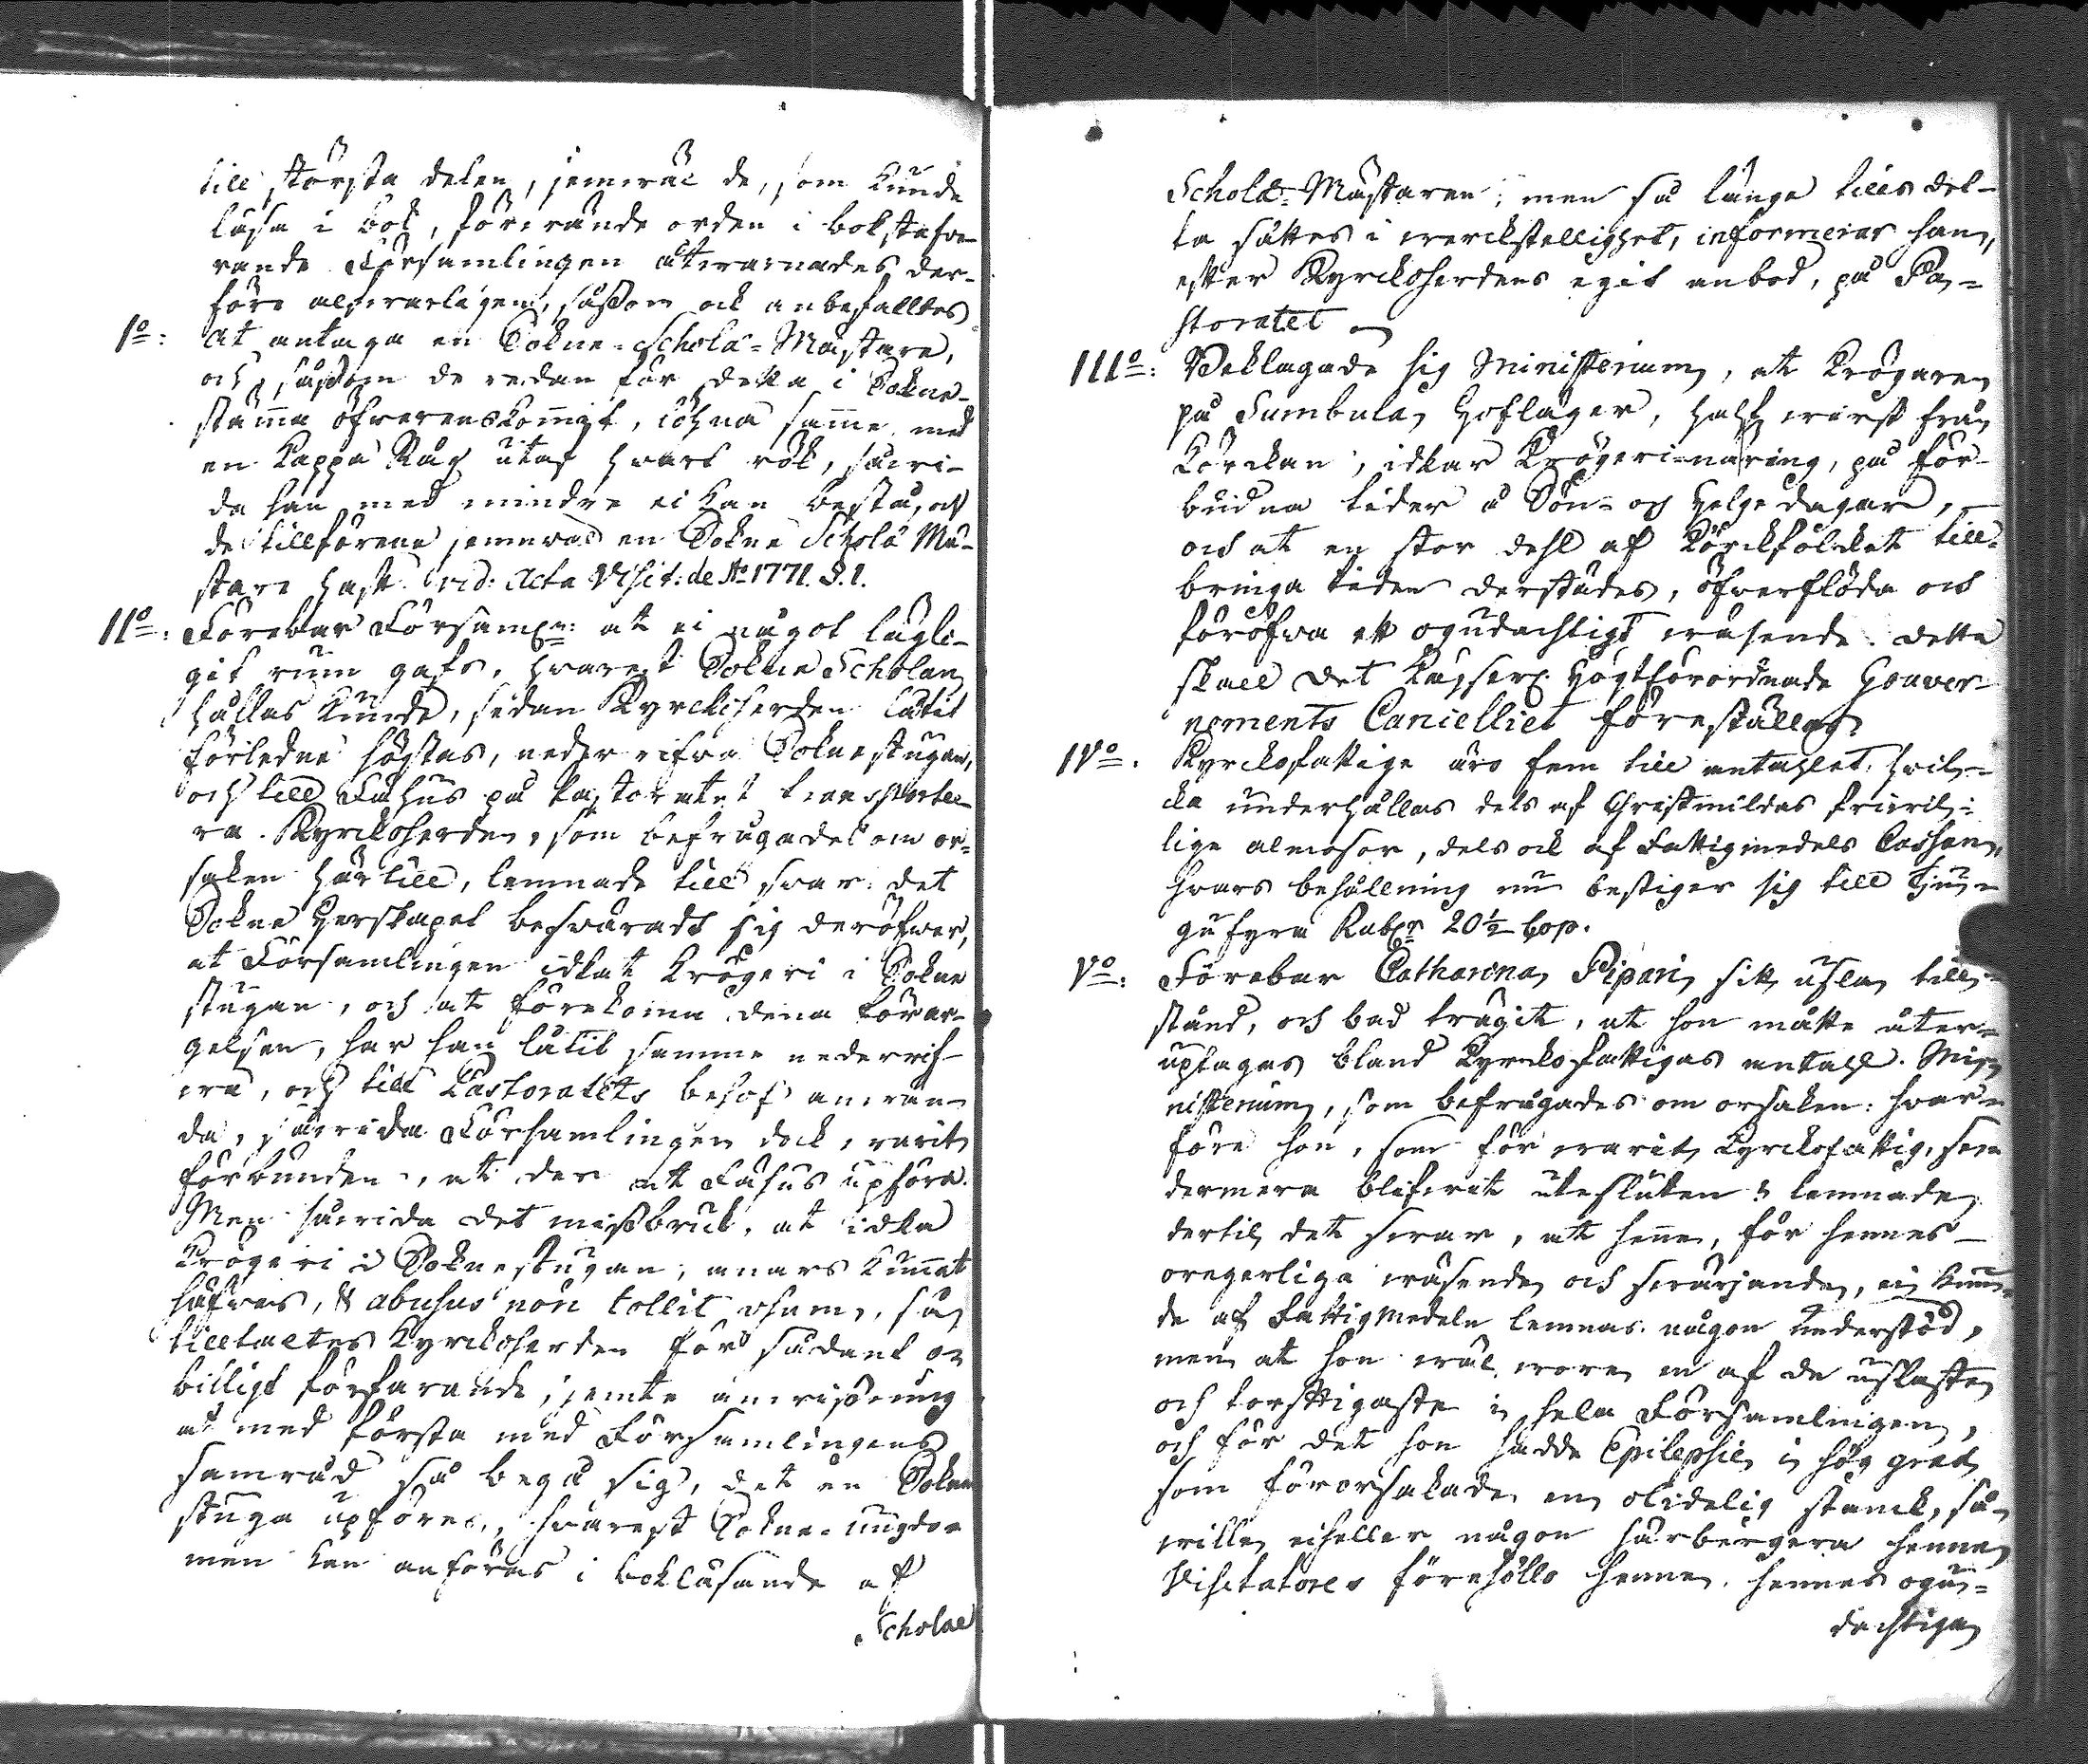 till största delen, jemwäl de, som kunde
läsa i bok, förwände orden i bokstafwe-
rande Församlingen åtwarnades der-
före alfwarligen, såsom ock anbefalltes
1o: At antaga en Sokne-Scholæ-Mästare,
och såsom de redan för detta i Sokne-
stämma öfwerenskommit, löhna samme med
en kappa Råg utaf hwart rök, såwi-
da han med mindre ei kan bestå, och
de tillförene jemwäl en Sokne Scholæ Mä-
stare haft. vid: Acta Visit: de Ao 1771. §.1.
IIo: Förebar Församl:n at ei något lägli-
git rum gafs, hwarest Sokne Scholan
hållas kunde, sedan Kyrckoherden låtit
förledne höstas, neder rifwa Soknestugan,
och till Fähus på Pastoratet transporte-
ra. Kyrckoherden, som befrågades om or-
saken härtill, lemnade till swar: det
Sokne Herskapet beswärade sig deröfwer,
at Församlingen idkat krögeri i Sokne
stugan, och at förekomma denna förar-
gelsen, har han låtit samma nederrif-
wa, och till Pastoratets behof anwän-
da, såwida Församlingen dock, warit
förbunden, at der ett Fähus upföra.
Men såwida det missbruk, at idka
Krögeri i Soknestugan, annars kunnat
häfwas, & abusus non tollit usum, så
tilltaltes Kyrckoherden för sådant o-
billigt förfarande, jemte anwisning
at med första med Församlingens
samråd så begå sig, det en Sokne
stuga upföres, hwarest Sokne-ungdo-
men kan anföras i bokläsande af
Scholae
Scholæ-Mästaren; men så länge tills det-
ta sättes i werckstellighet, informerar han,
efter Kyrckoherdens egit anbod, på Pa-
storatet
IIIo: Beklagade sig Ministerium, at Krögaren
på Sumbula Hoflager, half wirst från
Körckan, idkar Krögeri-näring, på för-
budna tider å Sön- och Helgedagar,
och at en stor dehl af Körckfolcket till-
bringa tiden derstädes, öfwerflöda och
föröfwa ett ogudachtigt wäsende. Dette
skall det Kayserl: Högtförordnade Gouver-
nements Cancelliet föreställas
IVo. Kyrckofattige äro fem till antahlet, hwil-
cka underhållas dels af Christmildas friwil-
lige almosor, dels ock af Fattigmedels Cassan,
hwars behållning nu bestiger sig till Tju-
gufyra Rubl:r 20½ Cop.
Vo: Förebar Catharina Pipari sitt usla till-
stånd, och bad trägit, at hon måtte åter-
uptagas bland Kyrckofattigas antahl. Mi-
nisterium, som befrågades om orsaken: hwar-
före hon, som för warit Kyrckofattig, sem
dermera blifwit utesluten: lemnade
dertil det swar, at henne, för hennes
oregerliga wäsende och swärjande, ei kun-
de af Fattigmedeln lemnas någon understöd,
men at hon wäl wore en af de uslaste
och torftigaste i hela Församlingen,
och för det hon hadde Epilepsie i hög grad
som förorsakade en olidelig stanck, så
wille eiheller någon härbergera henne
Visitatores föreböllo henne, hennes ogu-
dachtiga